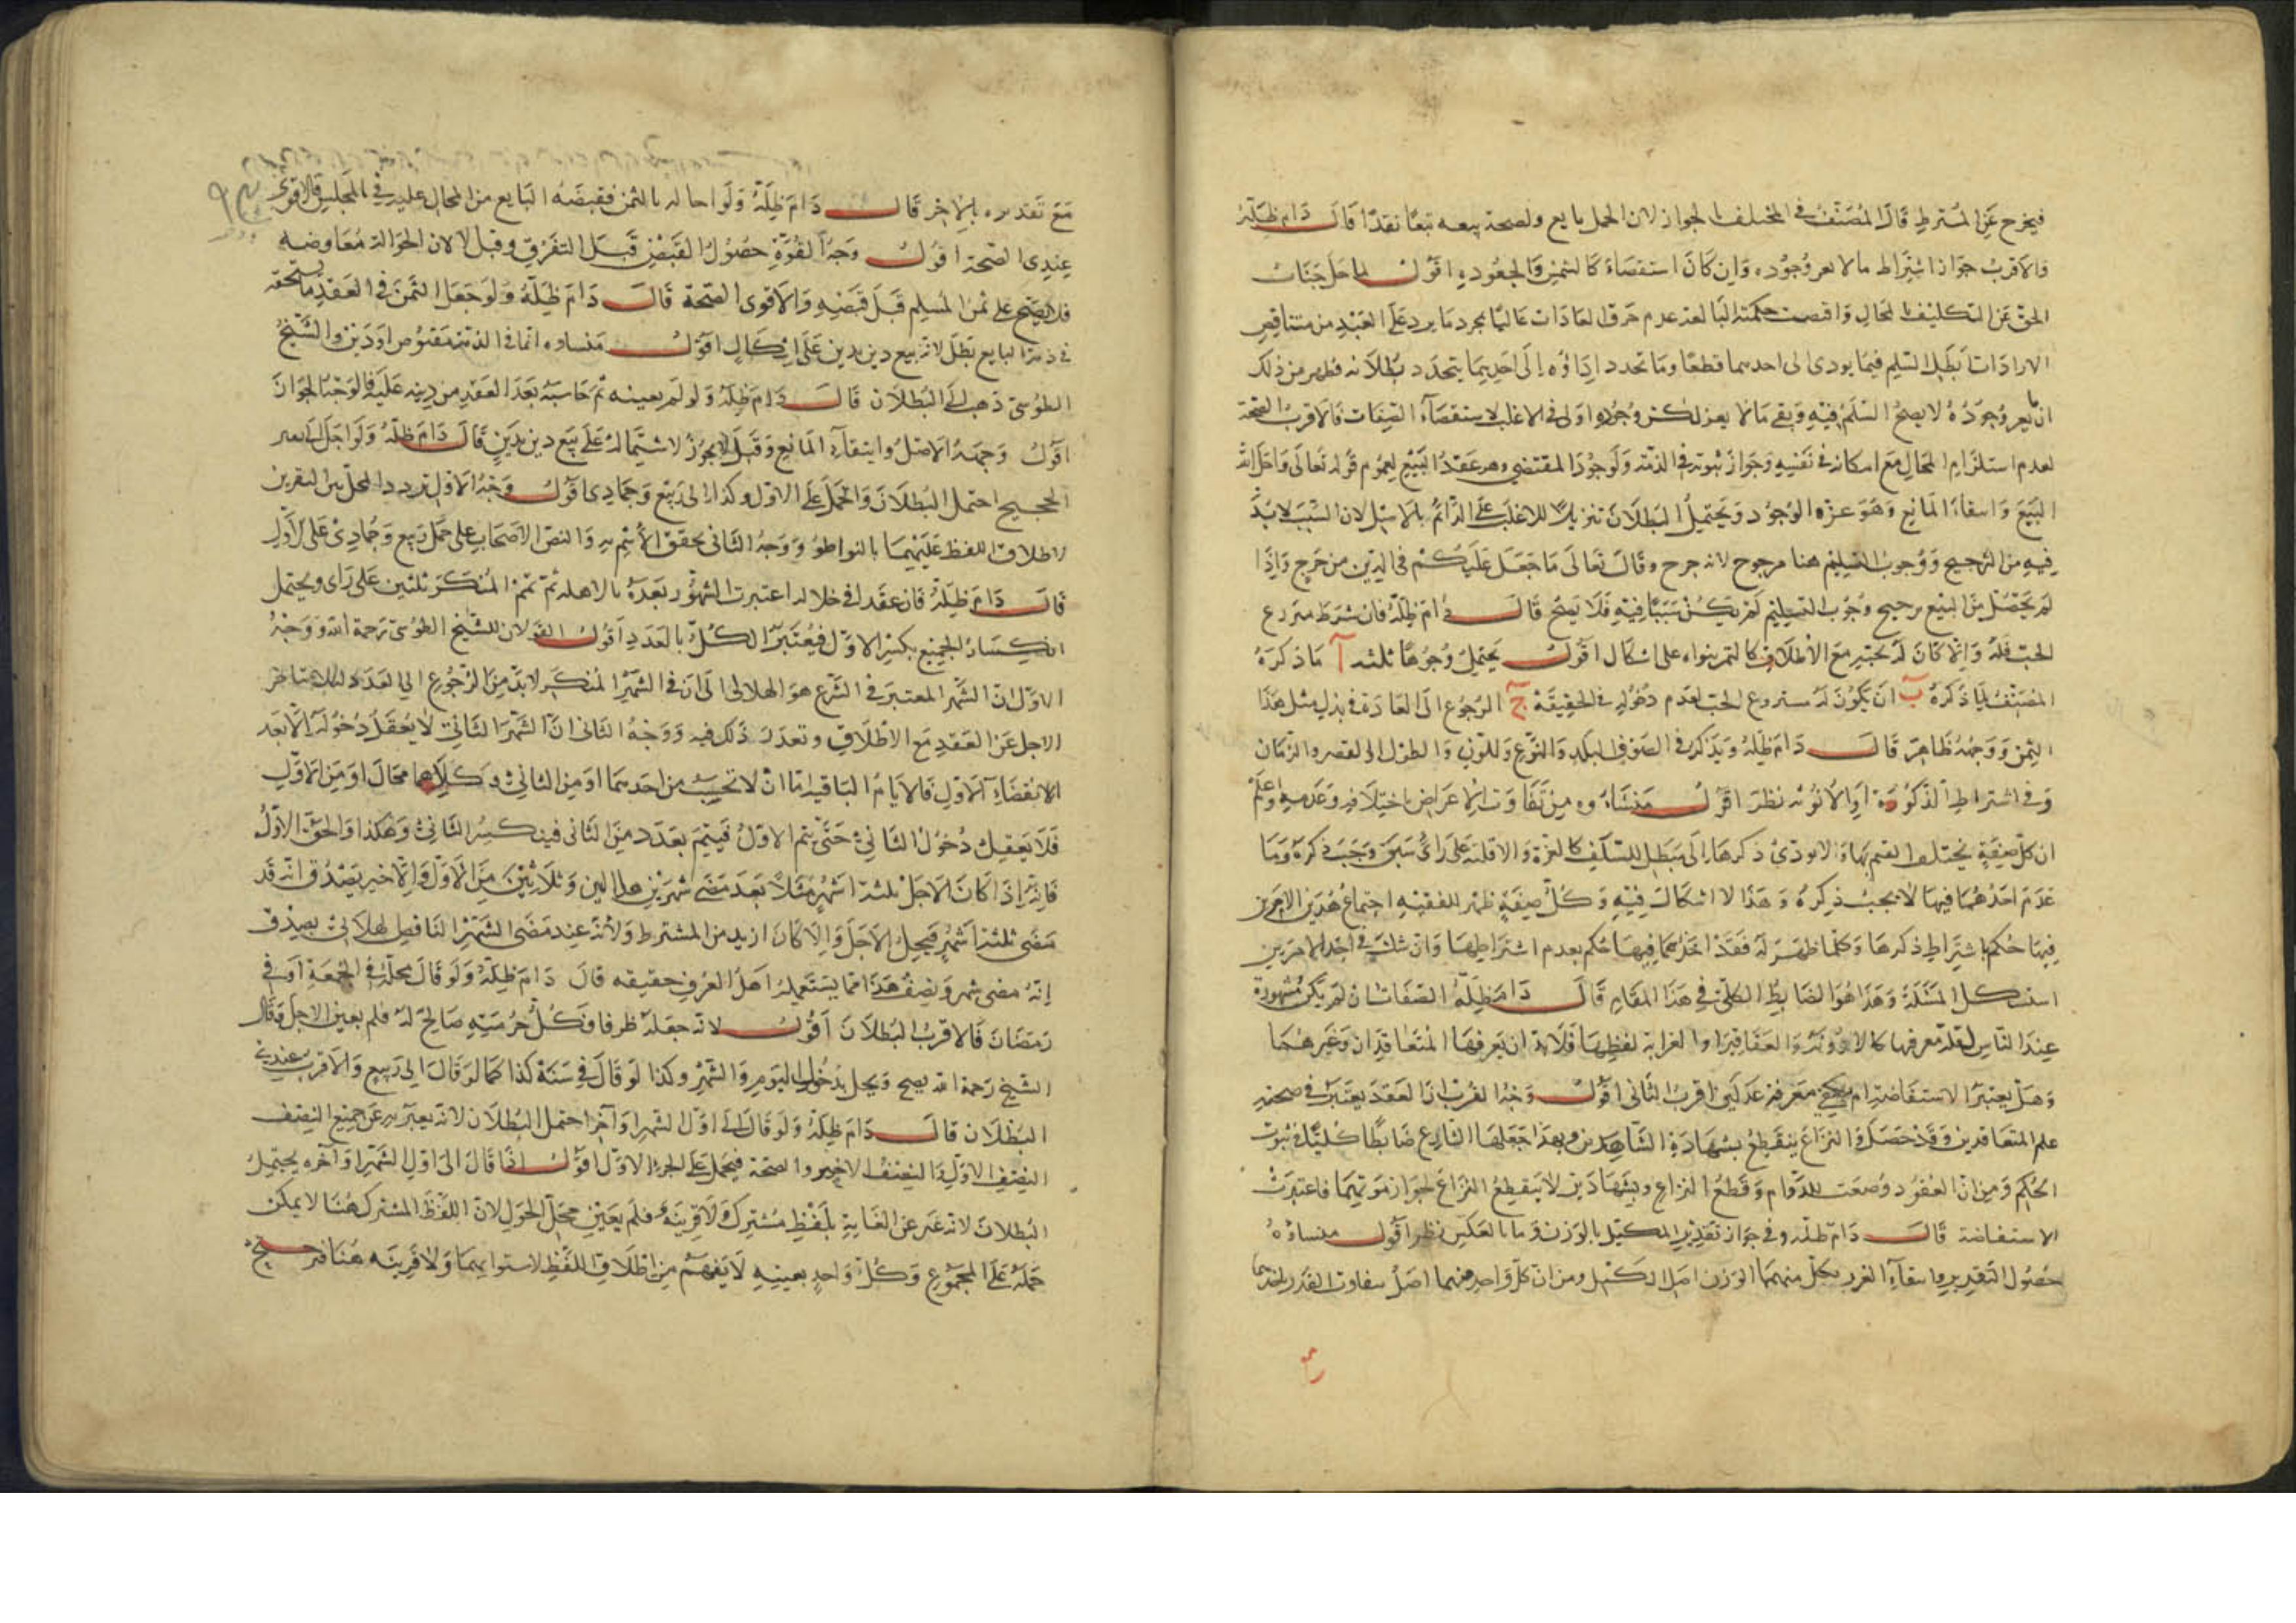 فيخرج عن المشترط قال المصنف في المختلف بالجواز لان الحمل مانع ولصحة بيعه تبعًا نقدًا قال دام ظله
والاقرب جواز اشتراط ما لا يعز وجوده وان كان استقصاء كالسمن والجعودة اقول لما جل جناب
الحق عن التكليف بالمحال واقتضت حكمته البالغة عدم خرق العادات غالبًا بمجرد ما يرد على العبد من متناقض
الارادات ابطل السلم فيما يودي الى احدهما قطعًا وما تجدد اداؤه الى احديهما يتجدد بطلانه فظهر من ذلك
ان ما يعز وجوده لا يصح السلم فيه وبقي ما لا يعز لكثرة وجوده اولى في الاغلب لاستقصاء الصفات فالاقرب الصحة
لعدم استلزام المحال مع امكانه في نفسه وجواز ثبوته في الذمة ولوجود المقتضي وهو عقد البيع لعموم قوله تعالى واحل الله
البيع وانتفاء المانع وهو عزة الوجود ويحتمل البطلان تنزيلا للاغلب على الدائم بالاسل لان السبب لا بد
فيه من الترجيح ووجوب التسليم هنا مرجوح لانه حرج وقال تعالى ما جعل عليكم في الدين من حرج واذا
لم يحصل من البيع ترجيح وجوب التسليم لم يكن سببًا فيه فلا يصح قال دام ظله فان شرط منزوع
الحب فله والا كان له بحبه مع الاطلاق كالتمر بنواه على اشكال اقول يحتمل وجوهًا ثلثة آ ما ذكره
المصنف لما ذكره ب ان يكون له منزوع الحب لعدم دخوله في الحقيقة ج الرجوع الى العادة في بذل مثل هذا
الثمن ووجهه ظاهر قال دام ظله ويذكر في الصوف البلد والنوع واللون والطول او القصر والزمان
وفي اشتراط الذكورة او الانوثة نظر اقول منشاؤه من تفاوت الاعراض باختلافه وعدمه واعلم
ان كل صفة يختلف القيم بها ولا يودي ذكرها الى مبطل للسلف كالعزة والاقلية على راي سبق وجب ذكره وما
عدم احدهما فيها لا يجب ذكره وهذا لا اشكال فيه وكل صفة ظهر للفقيه اجتماع هذين الامرين
فيها حكم باشتراط ذكرها وكلما ظهر له فقد احدهما فيها حكم بعدم اشتراطها وان شك في احد الامرين
استشكل المسئلة وهذا هو الضابط الكلي في هذا المقام قال دام ظله الصفات ان لم يكن مشهورة
عند الناس لقلة معرفتها كالادوية والعقاقير او لغرابة لفظها فلا بد ان يعرفها المتعاقدان وغيرهما
وهل يعتبر الاستفاضة ام يكفي معرفة عدلين اقرب الثاني اقول وجه القرب ان العقد يعتبر في صحته
علم المتعاقدين وقد حصل والنزاع ينقطع بشهادة الشاهدين ولهذا جعلها الشارع ضابطًا كليًا في ثبوت
الحكم ومن ان العقود وضعت للدوام وقطع النزاع وبشهادتين لا ينقطع النزاع لجواز موتهما فاعتبرت
الاستفاضة قال دام ظله وفي جواز تقدير الكيل بالوزن وما بالعكس نظر اقول منشاؤه
حصول التقدير وانتفاء الغرر بكل منهما الوزن اصل الكيل ومن ان كل واحد منهما اصل متفاوت القدر باحدهما
مع تقديره بالاخر قال دام ظله ولو احاله بالثمن فقبضه البايع من المحال عليه في المجلس فالاقوى
عندي الصحة اقول وجه القوة حصول القبض قبل التفرق وقيل لا لان الحوالة معاوضة
فلا يصح على ثمن المسلم قبل قبضه والاقوى الصحة قال دام ظله ولو جعل الثمن في العقد ما يستحقه
في ذمة البايع بطل لانه بيع دين بدين على اشكال اقول منشاوه ان ما في الذمة مقبوض او دين والشيخ
الطوسي ذهب الى البطلان قال دام ظله ولو لم يعينه ثم حاسبه بعد العقد من دينه عليه فالوجه الجواز
اقول وجهه الاصل وانتفاء المانع وقيل لا يجوز لاشتماله على بيع دين بدين قال دام ظله ولو اجل الى نفر
الحجيج احتمل البطلان والحمل على الاول وكذا الى ربيع وجمادى اقول وجه الاول تردد المحل بين النفرين
لاطلاق اللفظ عليهما بالتواطؤ ووجه الثاني تحقق الاسم به والنص الاصحاب على حمل ربيع وجمادى على الاول
قال دام ظله فان عقدا في خلاله اعتبرت الشهور بعده بالاهلة ثم تمم المنكسر ثلثين على راي ويحتمل
انكسار الجميع بكسر الاول فيعتبر الكل بالعدد اقول القولان للشيخ الطوسي رحمة الله ووجه
الاول ان الشهر المعتبر في الشرع هو الهلالي الا ان في الشهر المنكسر لا بد من الرجوع الى العدد لئلا يتاخر
الاجل عن العقد مع الاطلاق وتعذر ذلك فيه ووجه الثاني ان الشهر الثاني لا يعقل دخوله الا بعد
الانقضاء الاول فالايام الباقية اما ان لا تحسب من احدهما او من الثاني وكلاهما محال او من الاول
فلا يعقل دخول الثاني حتى يتم الاول فيتمم بعدد من الثاني فينكسر الثاني وهكذا والحق الاول
فانه اذا كان الاجل ثلثة اشهر مثلًا بعد مضي شهرين هلالين وثلاثين من الاول والاخير يصدق انه قد
مضى ثلثة اشهر فيحل الاجل والا كان ازيد من المشترط ولانه عند مضى الشهر الناقص الهلالي يصدق
انه مضى شهر ونصف هذا مما يستعمله اهل العرف حقيقه قال دام ظله ولو قال محله في الجمعة او في
رمضان فالاقرب البطلان اقول لانه جعله ظرفا وكل جزء منه صالح له فلم يعين الاجل وقال
الشيخ رحمة الله يصح ويحل بدخول اليوم والشهر وكذا لو قال في سنة كذا كما لو قال الى ربيع والاقرب عندي
البطلان قال دام ظله ولو قال الى اول الشهر او آخره احتمل البطلان لانه يعبر به عن جميع النصف
النصف الاول والنصف الاخير والصحة فيحمل على الجزء الاول اقول اذا قال الى اول الشهر او آخره يحتمل
البطلان لانه عبر عن الغاية بلفظ مشترك ولا قرينة فلم يعين محل الحول لان اللفظ المشترك هنا لا يمكن
حمله على المجموع وكل واحد بعينه لا يفهم من اطلاق اللفظ لاستوائهما ولا قرينه هنا مرجح